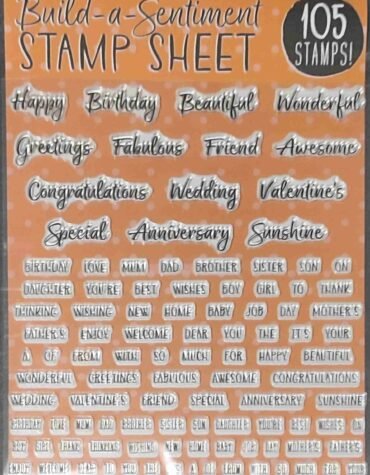 Build-a-Sentiment
STAMP SHEET
105
STAMPS!
Happy Birthday Beautiful Wonderful
Greetings Fabulous Friend Awesome
Congratulations Wedding Valentine's
Special Anniversary Sunshine
BIRTHDAY LOVE MUM DAD BROTHER SISTER SON ON
DAUGHTER YOU'RE BEST WISHES BOY GIRL TO THANK
THINKING WISHING NEW HOME BABY JOB DAY MOTHER'S
FATHER'S ENJOY WELCOME DEAR YOU THE IT'S YOUR
A OF FROM WITH SO MUCH FOR HAPPY BEAUTIFUL
WONDERFUL GREETINGS FABULOUS AWESOME CONGRATULATIONS
WEDDING VALENTINE'S FRIEND SPECIAL ANNIVERSARY SUNSHINE
BIRTHDAY LOVE MUM DAD BROTHER SISTER SON DAUGHTER YOU'RE BEST WISHES ON
BOY GIRL THANK THINKING WISHING NEW HOME BABY JOB DAY MOTHER'S FATHER'S
ENJOY WELCOME DEAR TO YOU THE MUCH FOR YOUR